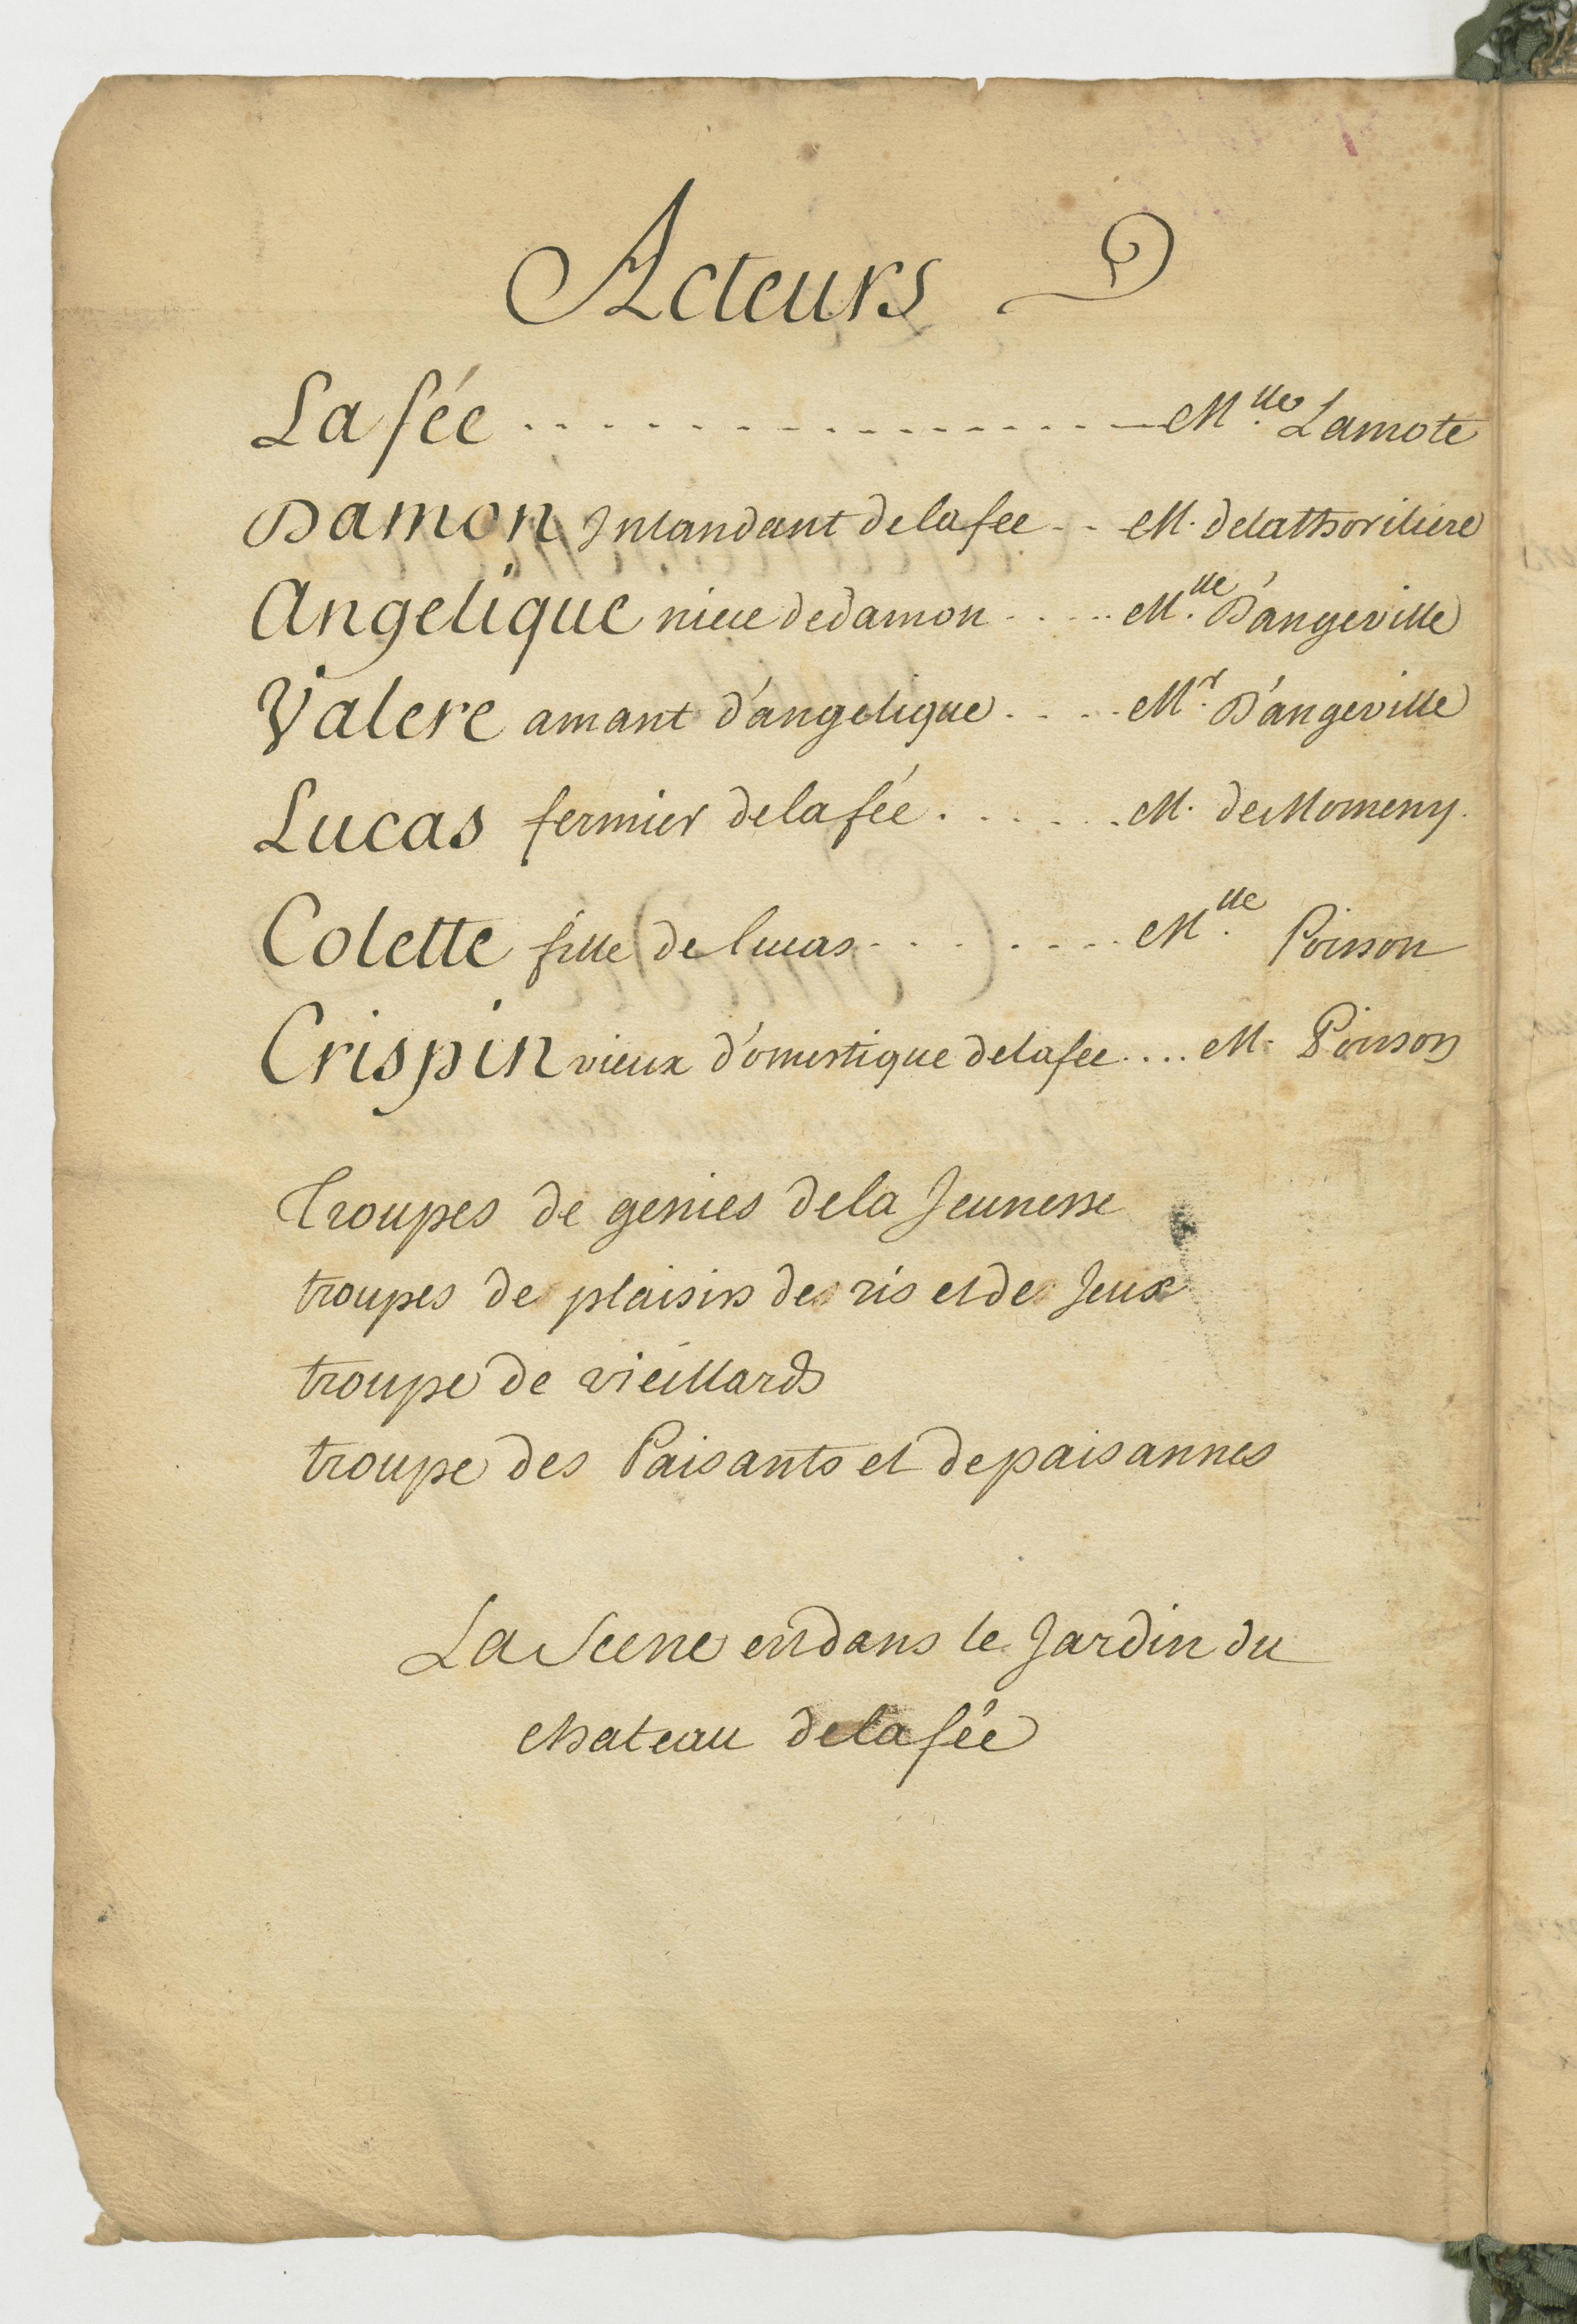 Acteurs
La fée . . . . . . . . . . . . . . . . . Mlle. Lamote
Damon Intandant de la fee . . M. delathoriliere
Angelique niece de damon . . . . . Mlle. D'angeville
Valere amant d'angelique . . . . . Mr. D'angeville
Lucas fermier de la fée . . . . . . M. de Momeny.
Colette fille de lucas . . . . . . . . Mlle. Poisson
Crispin vieux d'omestique de la fee . . . . M. Poisson
Troupes de genies de la Jeunesse
troupes de plaisirs de ris et de Jeux
troupe de vieillards
troupe des Paisants et de paisannes
La Scene est dans le Jardin du
chateau de la fée